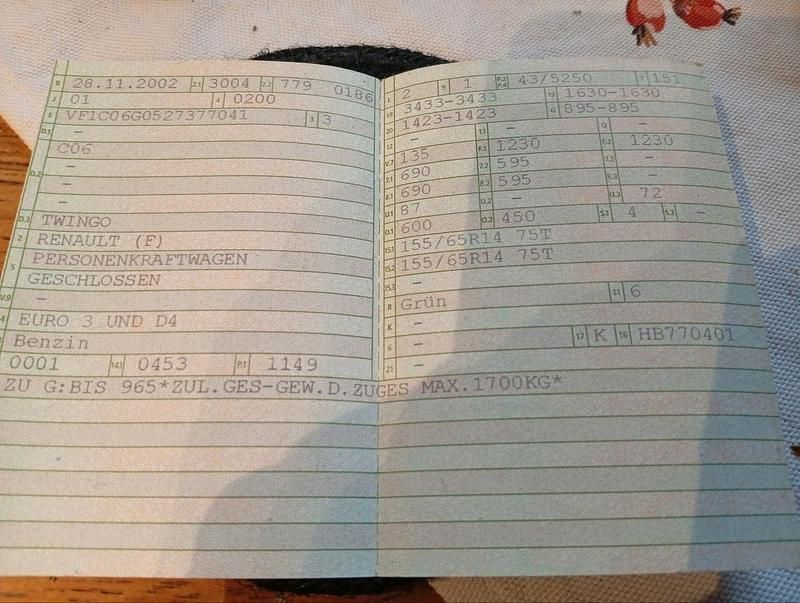 B 28.11.2002 2.1 3004 2.2 779 0186
J 01 4 0200
E VF1C06G0527377041 3 3
D.1 –
C06
–
D.2 –
–
D.3 TWINGO
2 RENAULT (F)
5 PERSONENKRAFTWAGEN
GESCHLOSSEN
V.9 –
EURO 3 UND D4
Benzin
0001 14.1 0453 P.1 1149
L 2 9 1 P.2 P.4 43/5250 T 151
18 3433-3433 19 1630-1630
20 1423-1423 G 895-895
12 – 13 – Q –
V.7 135 F.1 1230 F.2 1230
7.1 690 7.2 595 7.3 –
8.1 690 8.2 595 8.3 –
U.1 87 U.2 – U.3 72
O.1 600 O.2 450 S.1 4 S.2 –
15.1 155/65R14 75T
15.2 155/65R14 75T
15.3 –
R Grün 11 6
K –
6 – 17 K 16 HB770401
21 –
ZU G:BIS 965*ZUL.GES-GEW.D.ZUGES MAX.1700KG*